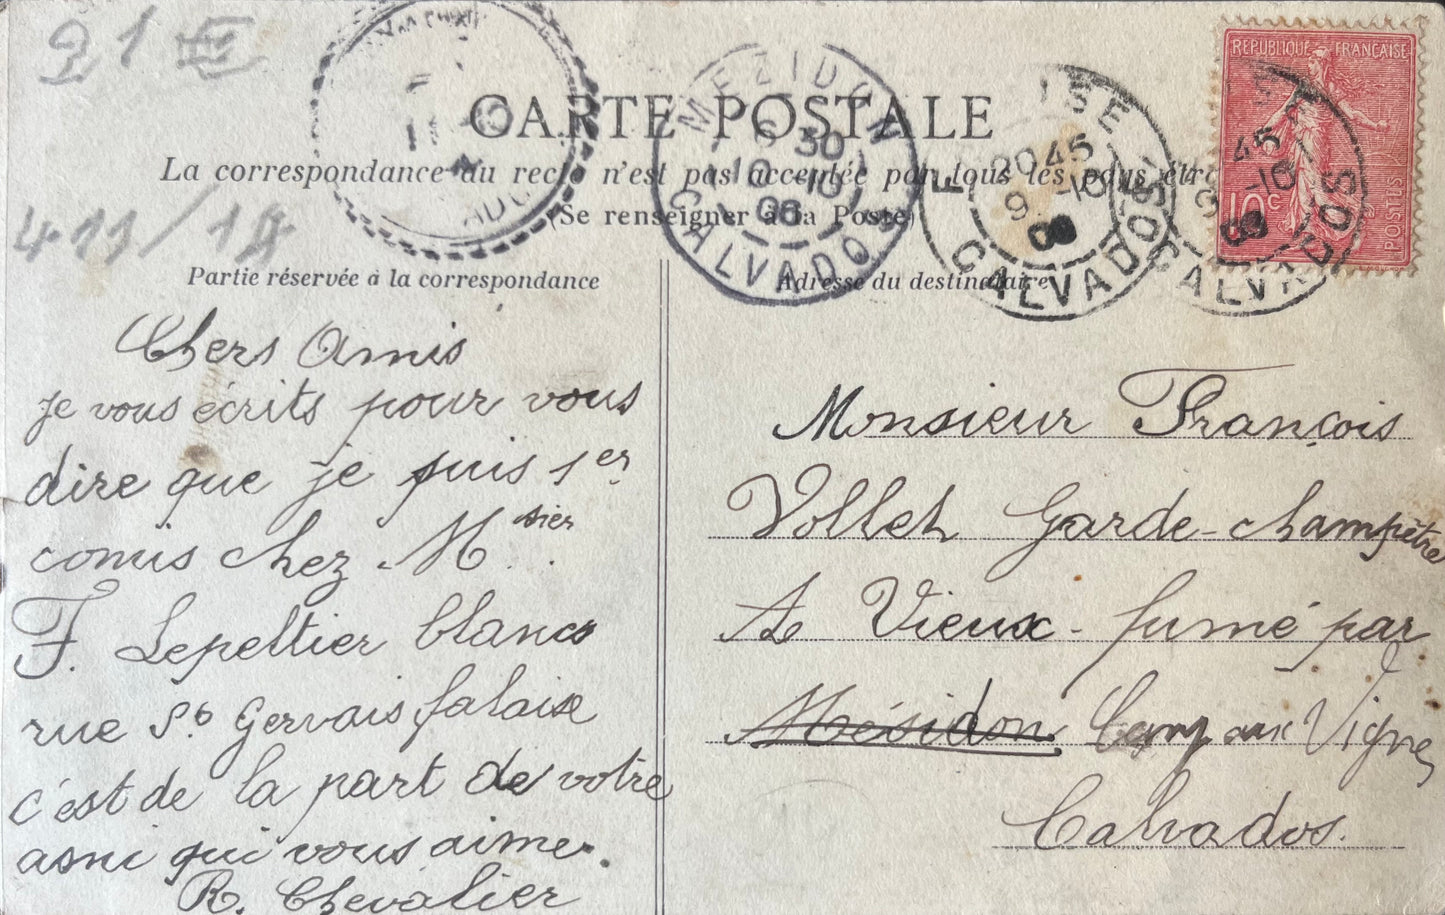 21 E
CARTE POSTALE
La correspondance au recto n'est pas acceptée par tous les pays étra
(Se renseigner à la Poste)
411/14
MEZIDON
6 30
10 -10
06
CALVADOS
ISE
2045
9 -10
06
CALVADOS
ISE
45
-10
CALVADOS
REPUBLIQUE FRANÇAISE
10c
POSTES
Partie réservée à la correspondance
Chers Amis
je vous écrits pour vous
dire que je suis 1er
comis chez M sier
F. Lepeltier blancs
rue St Gervais falaise
c'est de la part de votre
ami qui vous aime.
R. Chevalier
Adresse du destinataire
Monsieur François
Vollet Garde-champêtre
A Vieux-fumé par
Mésidon aux Vignes
Calvados.